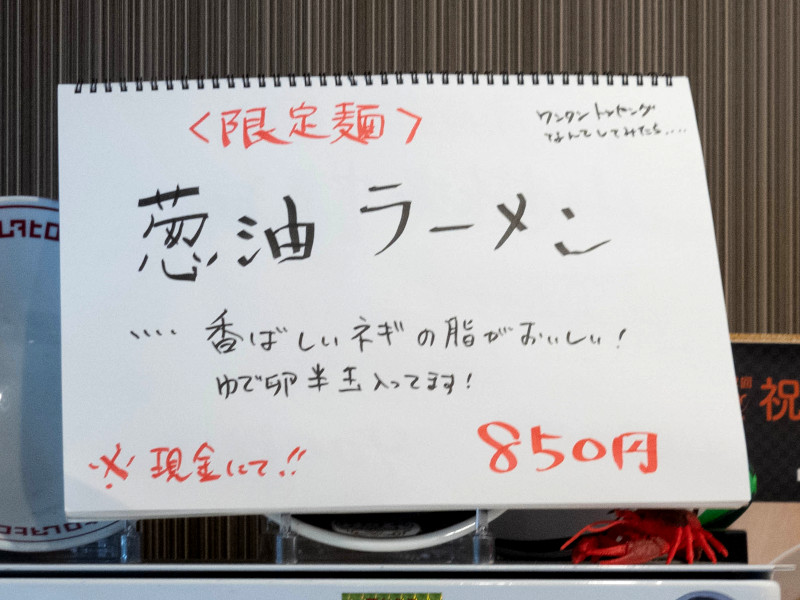 〈限定麺〉
ワンタントッピング
なんてしてみたら....
葱油ラーメン
.... 香ばしいネギの脂がおいしい!
ゆで卵半玉入ってます!
※現金にて!!
850円
祝